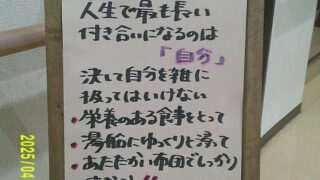 人生で最も長い
付き合いになるのは
「自分」
決して自分を雑に
扱ってはいけない
・栄養のある食事をとって
・湯船にゆっくりと浸って
・あたたかい布団でしっかり
2025/04